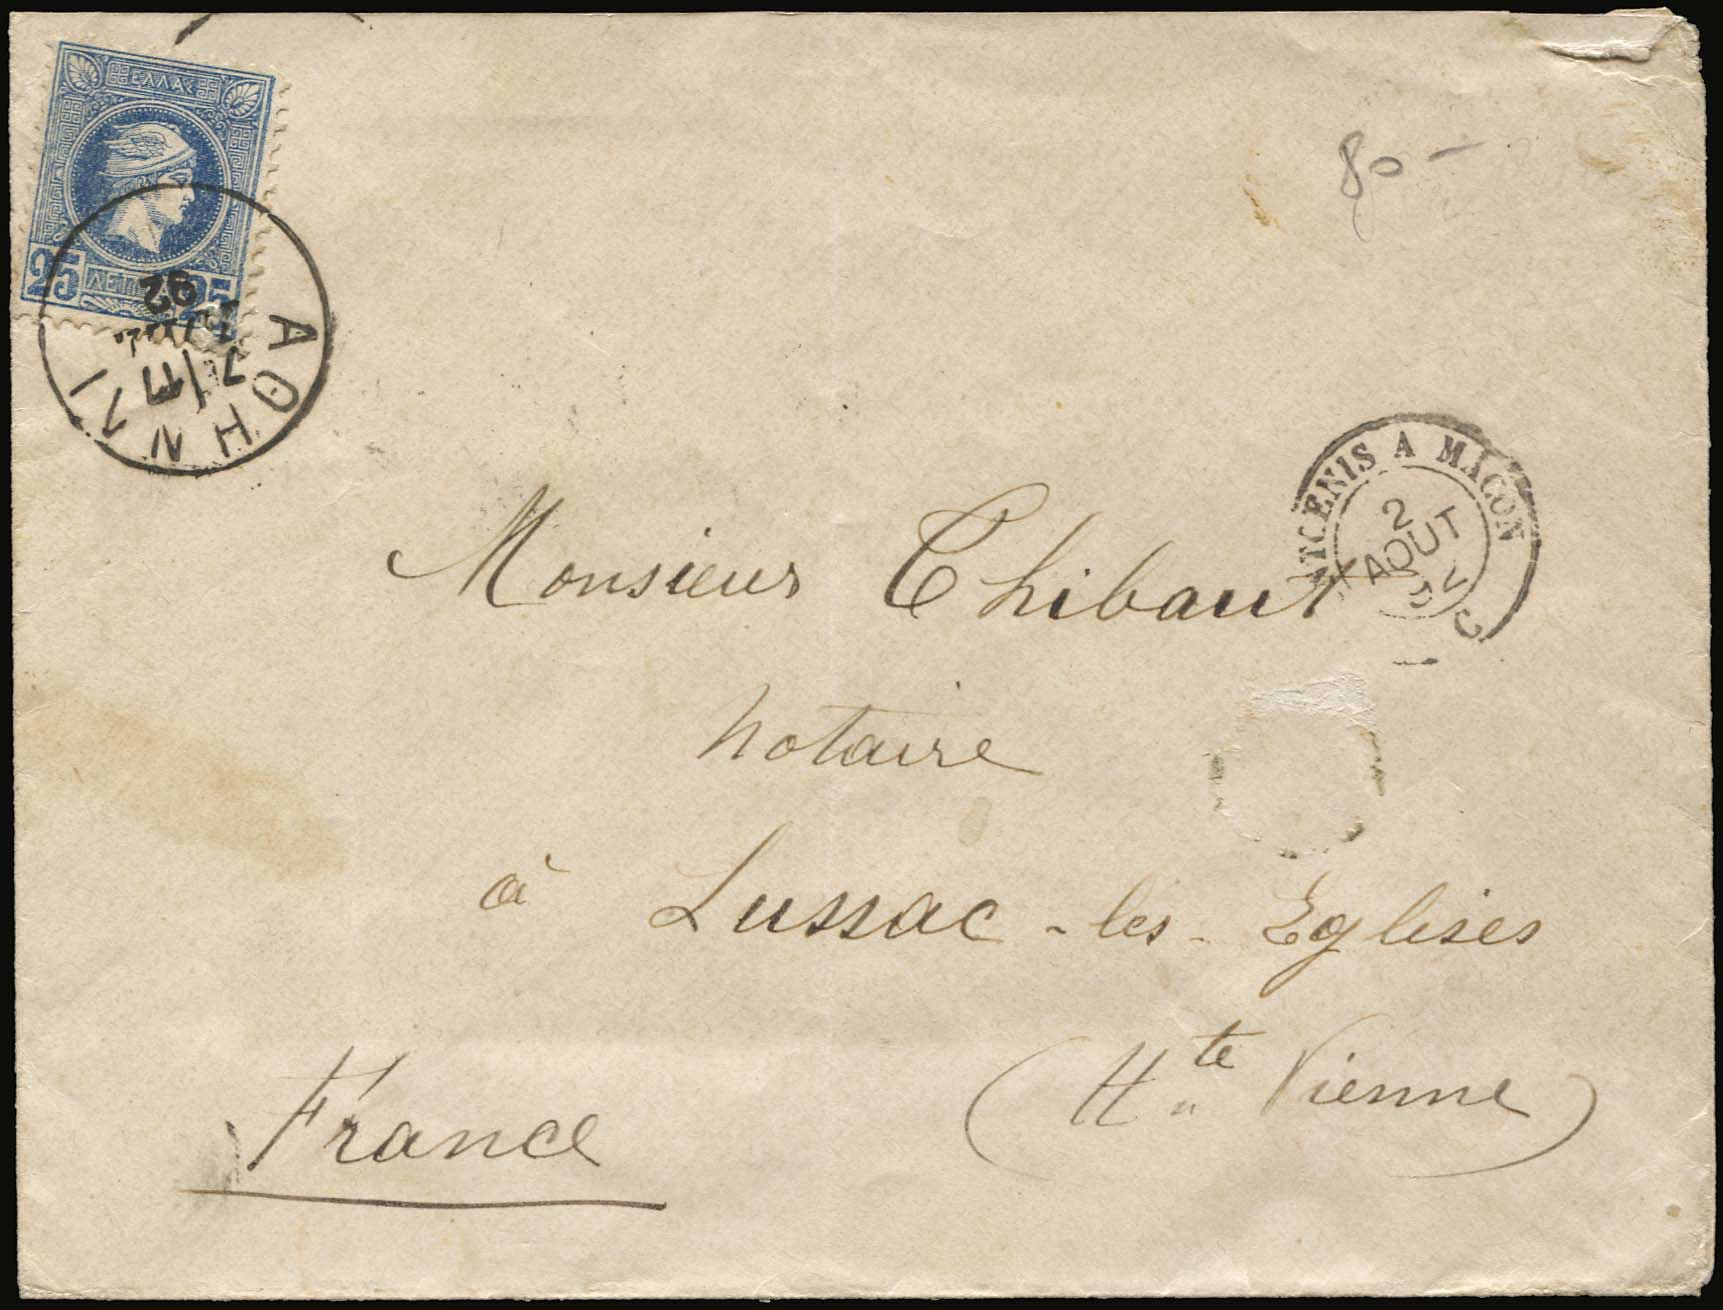 ΕΛΛΑΣ
25 ΛΕΠΤΑ 25
ΑΘΗΝΑΙ
92
80 -
MTCENIS A MACON
2
AOUT
92
C
Monsieur Thibaut
notaire
à Lussac-les-Eglises
(Hte Vienne)
France